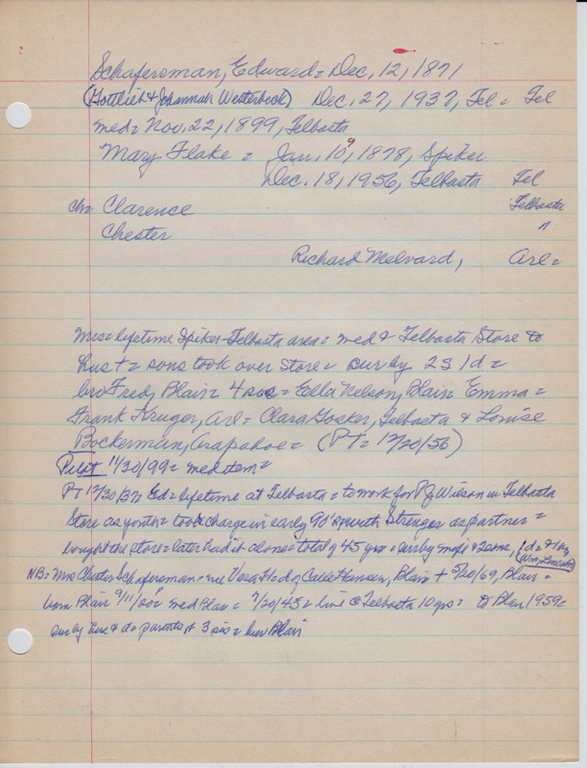 Schafersman, Edward = Dec. 12, 1871
(Gottlieb & Johannah Westerbeck) Dec. 27, 1937, Tel = Tel
med = Nov. 22, 1899, Telbasta
Mary Flake = Jan. 10, 9 1878, Spiker
Dec. 18, 1956, Telbasta Tel
ch = Clarence Telbasta
Chester "
Richard Melvard, Arl =
Mrs = lifetime Spiker-Telbasta area = med & Telbasta Store to
hus + = sons took over store = sur by 2 S 1 d =
bro Fred, Blair = 4 sis = Ella Nelson, Blair Emma =
Frank Kruger, Arl = Clara Gosker, Telbasta & Louise
Bockerman, Arapahoe = (PT = 12/20/56)
Pilot 11/30/99 = med item =
PT 12/30/37 = Ed = lifetime at Telbasta = to work for P J Wilson in Telbasta
Store as youth = took charge in early 90's with Stenger as partner =
bought the store = later had it alone = total of 45 yrs = sur by & 2 sons, 1 d =
NB = Mrs Chester Schafersman = nee Vera H = d of Hansen, Blair + 5/20/69, Blair =
born Blair 9/11/ = med Blair = 7/20/45 = live @ Telbasta 10 yrs = to Blair 1959 =
sur by hus & d = parents & 3 sis = bur Blair